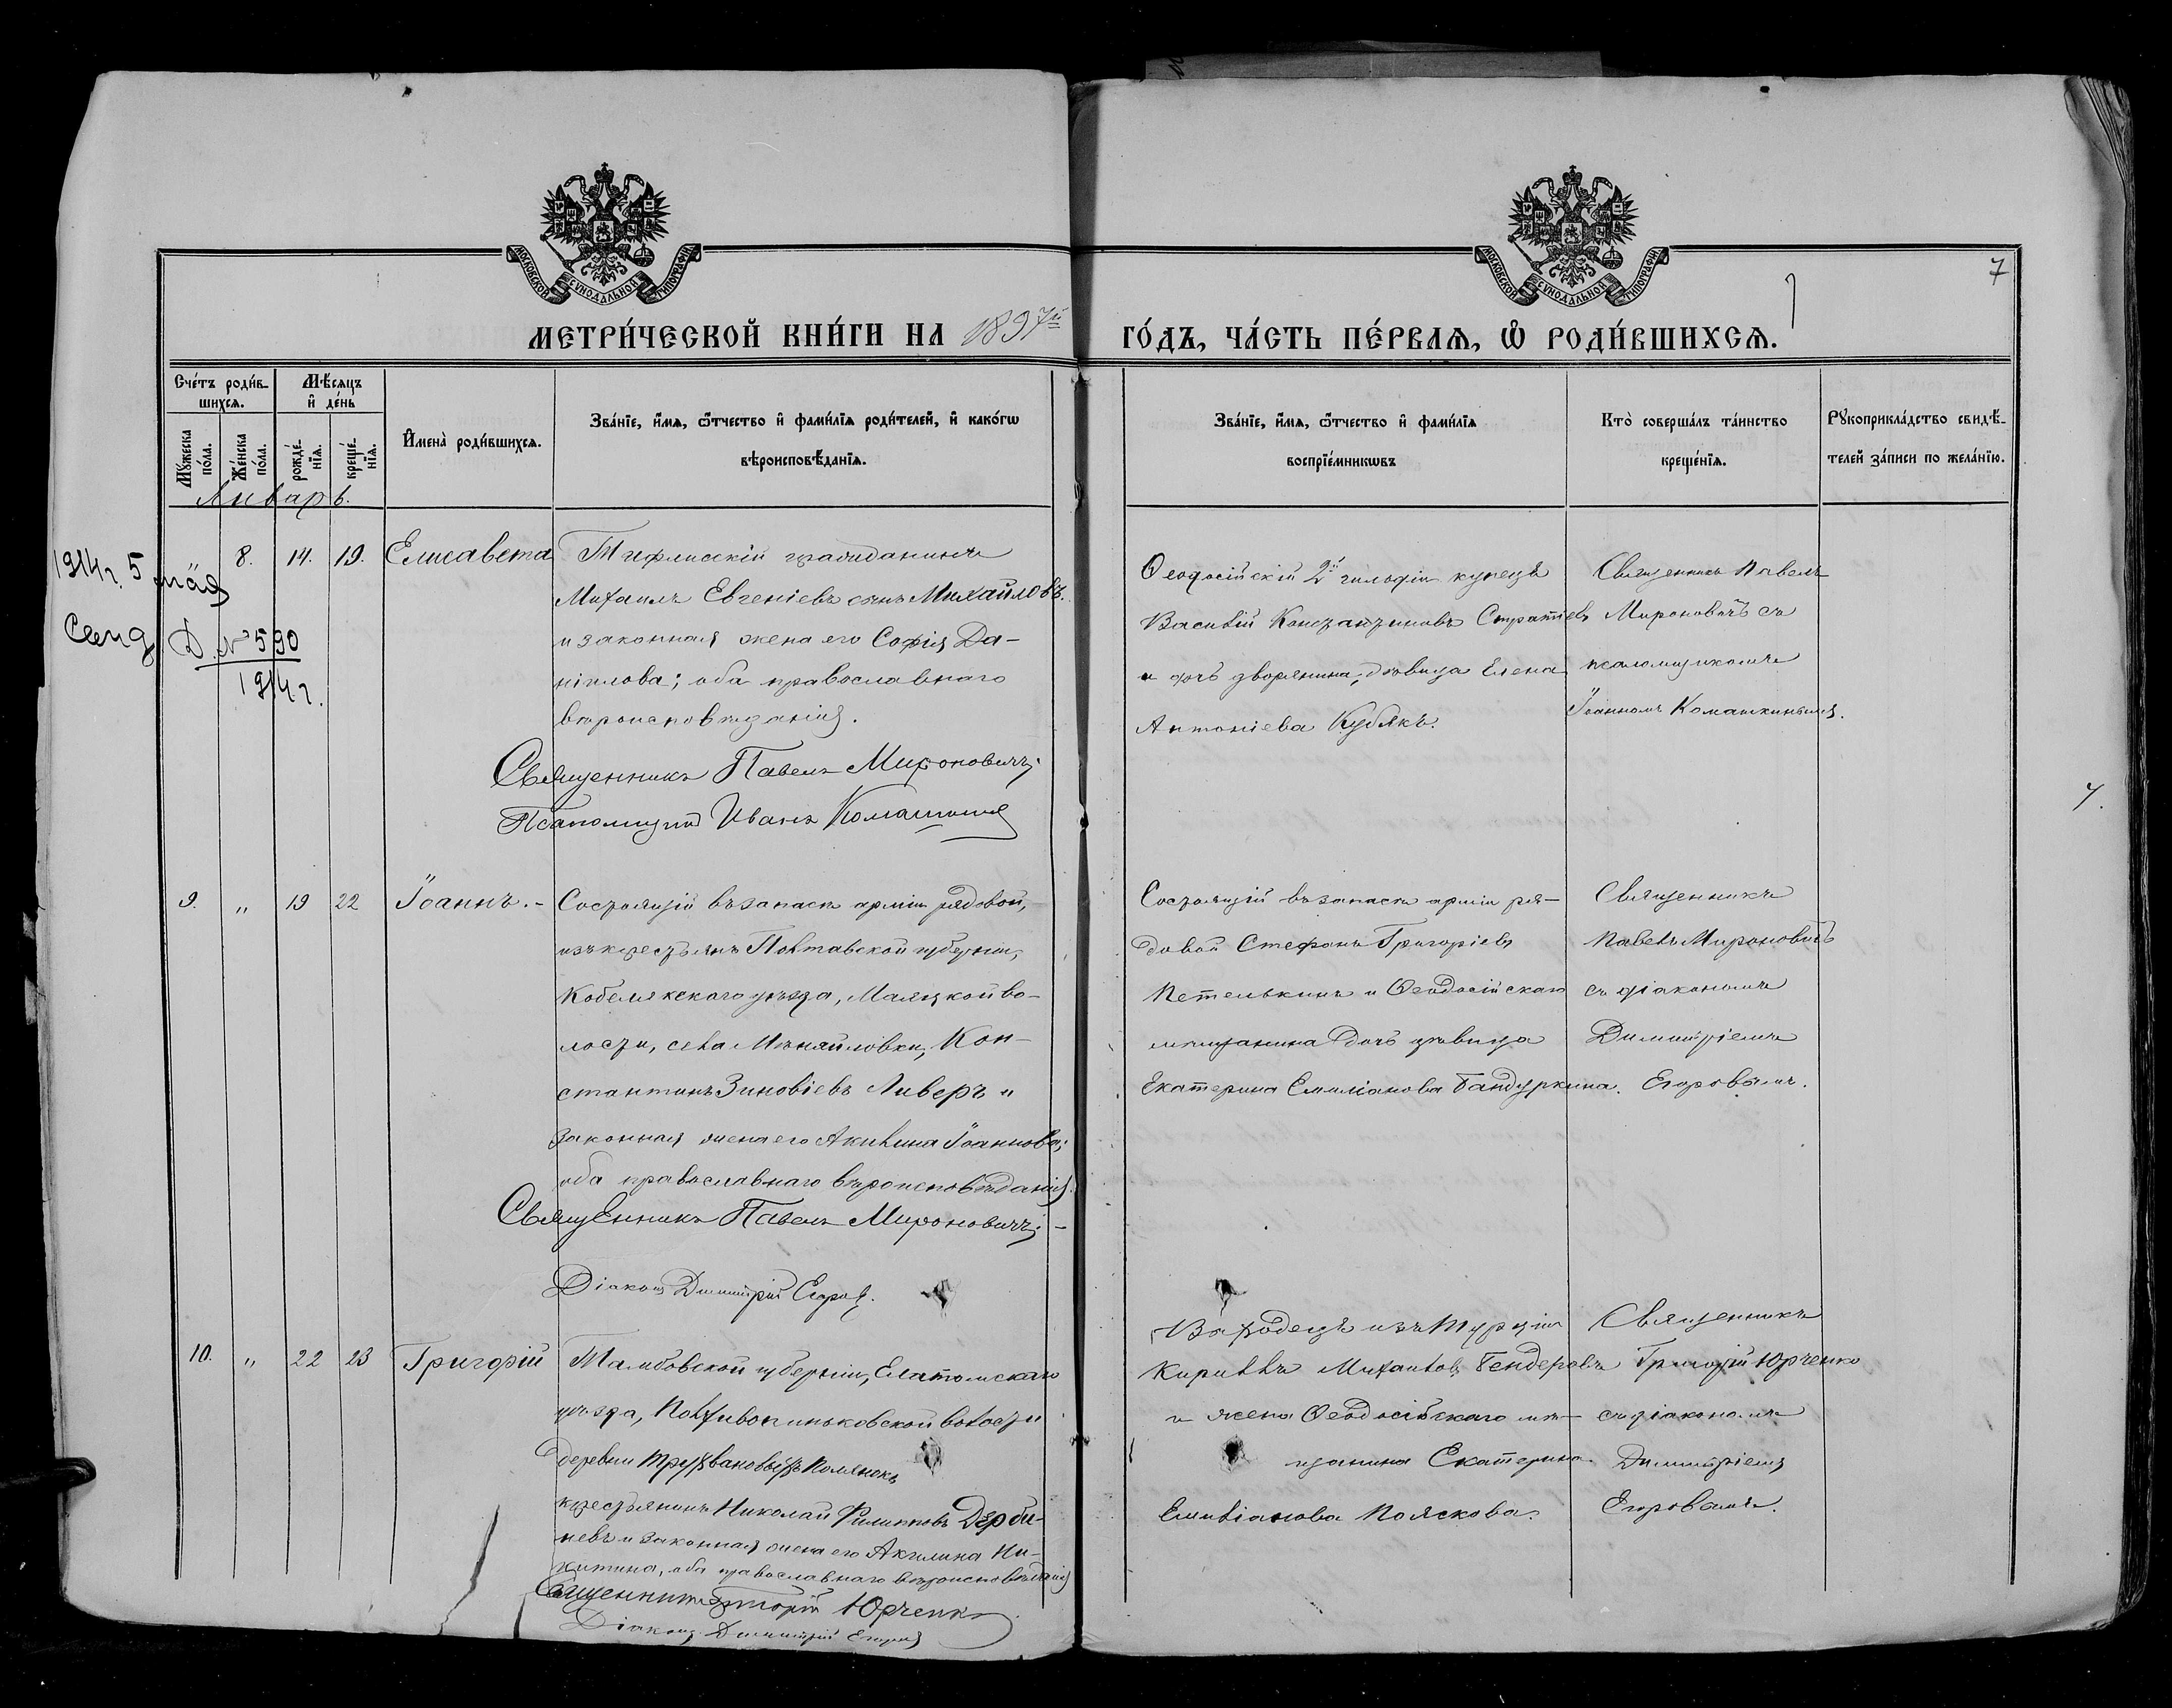 МОСКОВСКОЙ СУНОДАЛЬНОЙ ТИПОГРАФІИ
МОСКОВСКОЙ СУНОДАЛЬНОЙ ТИПОГРАФІИ
7
МЕТРИ́ЧЕСКОЙ КНИ́ГИ НА 1897й
ГО́ДЪ, ЧА́СТЬ ПЕ́РВАЯ, Ѡ РОДИ́ВШИХСЯ.
Сче́тъ роди́в-
шихся.
Мѣ́сяцъ
и де́нь
Мꙋжеска
по́ла.
Же́нска
по́ла.
рожде́-
нїя.
креще́-
нїя.
Имена̀ роди́вшихся.
Зва́нїе, и́мя, ѻ҆́тчество и фами́лїя роди́телей, и како́гѡ
вѣроисповѣ́данїя.
Зва́нїе, и́мя, ѻ҆́тчество и фами́лїя
воспрїе́мникѡвъ
Кто̀ соверша́лъ та́инство
креще́нїя.
Рꙋкоприкла́дство свидѣ́-
телей за́писи по жела́нїю.
Январь.
8. 14. 19. Елисавета
Тифлисскій гражданинъ
Михаилъ Евгеніевъ сынъ Михайловъ
и законная жена его Софія Да-
ніилова; оба православнаго
вѣроисповѣданія.
Священникъ Павелъ Мироновичъ
Псаломщикъ Иванъ Комашкинъ
1914 г. 5 мая
Д. № 590
1914 г.
Ѳеодосійскій 2й гильдіи купецъ
Василій Константиновъ Стратіевъ
и дочь дворянина, дѣвица Елена
Антоніева Кубякъ.
Священникъ Павелъ
Мироновичъ съ
псаломщикомъ
Іоанномъ Комашкинымъ.
7.
9. " 19 22 Іоаннъ.-
Состоящій въ запасѣ арміи рядовой,
изъ крестьянъ Полтавской губерніи,
Кобелякскаго уѣзда, Маяцкой во-
лости, села Михайловки, Кон-
стантинъ Зиновіевъ Ливеръ и
законная жена его Акилина Іоаннова;
оба православнаго вѣроисповѣданія.
Священникъ Павелъ Мироновичъ.-
Діаконъ Димитрій Егоровъ.
Состоящій въ запасѣ арміи ря-
довой Стефанъ Григоріевъ
Петелькинъ и Ѳеодосійскаго
мѣщанина дочь дѣвица
Екатерина Емиліанова Бандуркина.
Священникъ
Павелъ Мироновичъ
съ діакономъ
Димитріемъ
Егоровымъ.
10. " 22 23 Григорій
Тамбовской губерніи, Елатомскаго
уѣзда, волости
деревни Полянокъ
крестьянинъ Николай Филипповъ Дерби-
невъ и законная жена его Акилина Ни-
китина, оба православнаго вѣроисповѣданія
Священникъ Григорій Юрченко
Діаконъ Димитрій Егоровъ
Выходецъ изъ Турціи
Кириллъ Михаиловъ Бендеровъ
и жена Ѳеодосійскаго мѣ-
щанина Екатерина
Емиліанова Пояскова.
Священникъ
Григорій Юрченко
съ діакономъ
Димитріемъ
Егоровымъ.